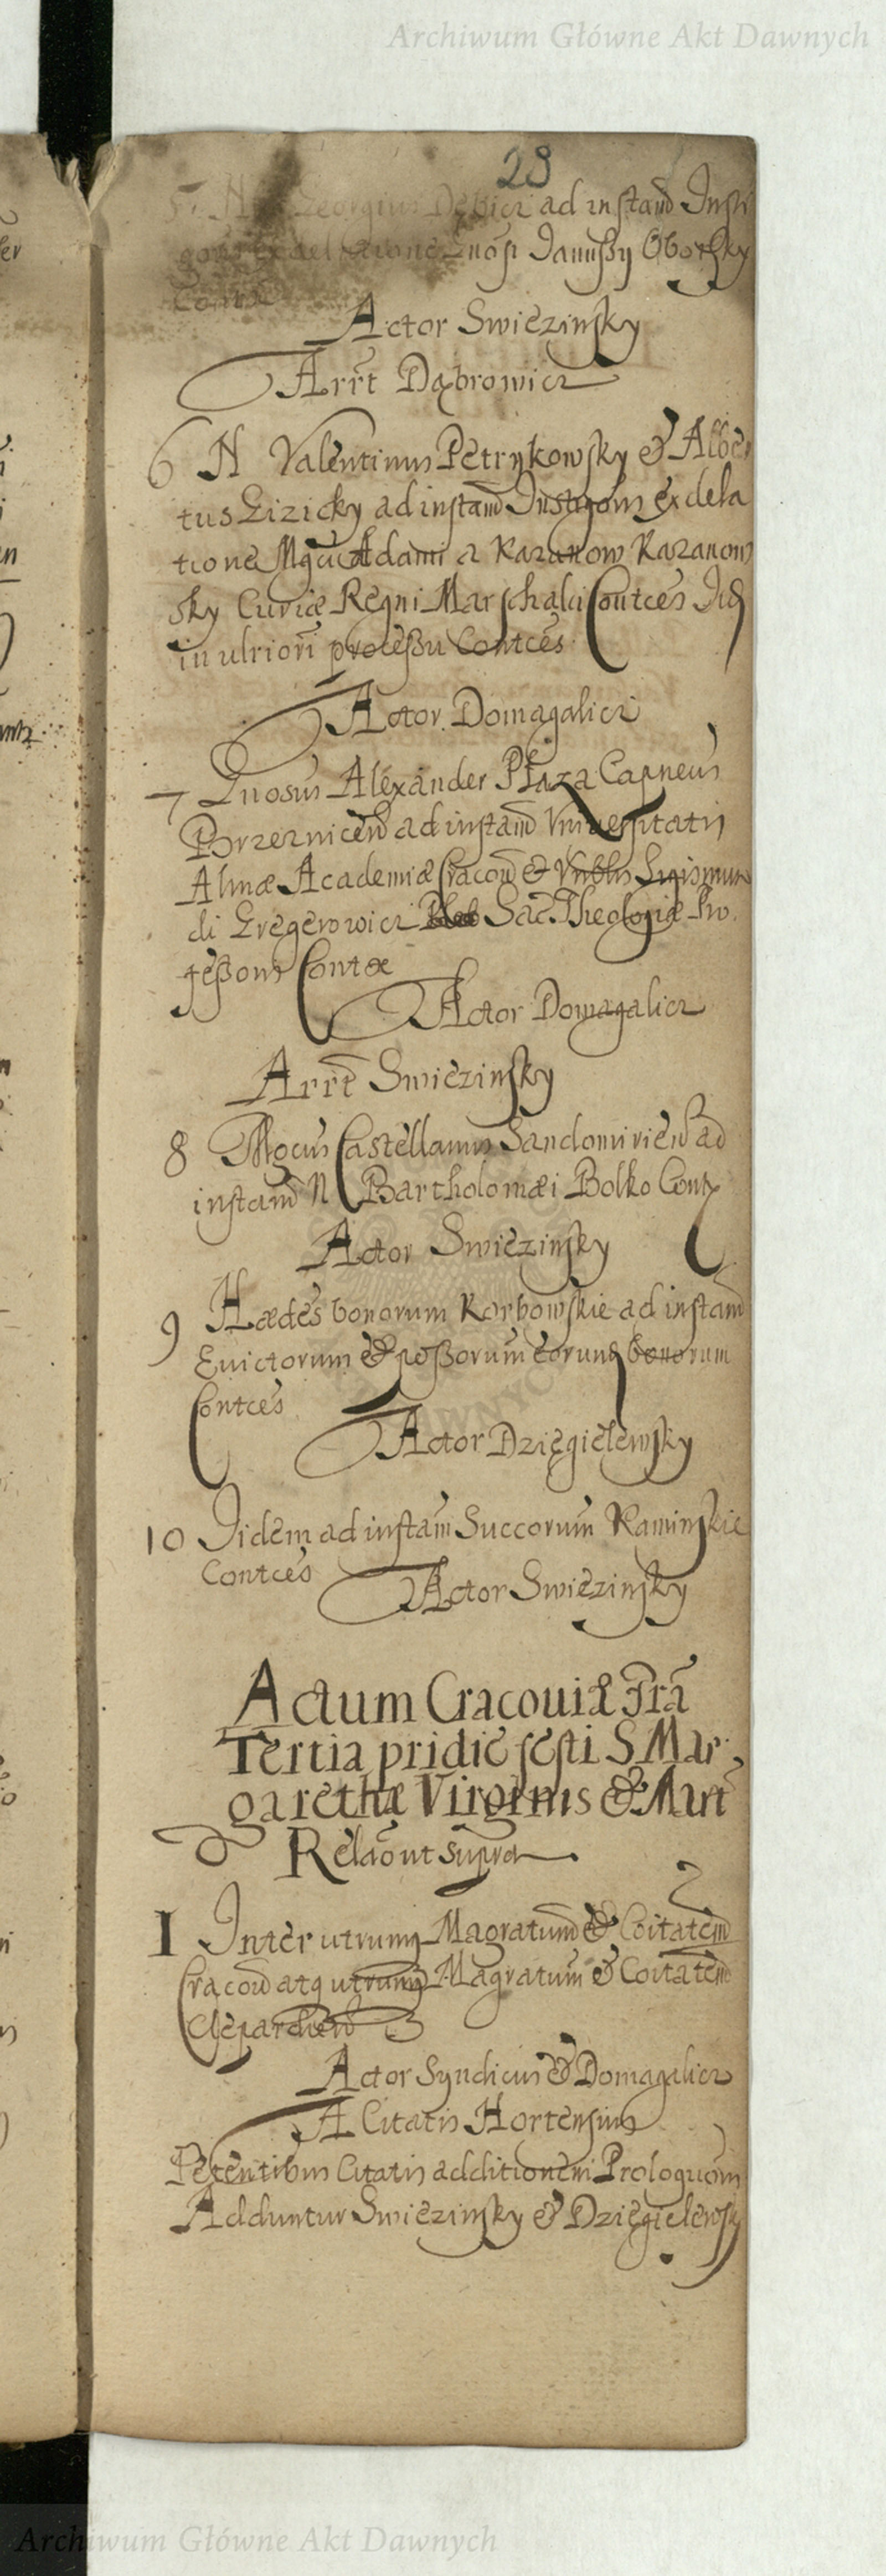 Archiwum Główne Akt Dawnych
29
5. N Georgius Dębicz ad instañ Insti
ex delatione Gnosi Janussy Oborsky
Contces
Actor Swiezinsky
Arrt Dąbrowicz
6 N Valentinus Petrykowsky & Alber
tus Gizicky ad instañ Instigõm ex dela
tione Mgci Adami a Kazanow Kazanow
sky Curiæ Regni Marschalci Contces Iidē
in ulriori processu Contces
Actor Domagalicz
7 Gnosus Alexander Płaza Capneus
Brzeznicen ad instañ Universitatis
Almæ Academiæ Cracov & Vnblis Sigismun
di Gregerowicz Sac. Theologiæ Pro.
fessoris Contæ
Actor Domagalicz
Arrt Swiezinsky
8 Mgcus Castellanus Sandomirien ad
instañ N Bartholomæi Bolko Contx
Actor Swiezinsky
9 Hædes bonorum Korbowskie ad instañ
Euictorum & possorum eorunq bonorum
Contces
Actor Dzięgielewsky
10 Iidem ad instam Succorum Kaminskie
Contces
Actor Swiezinsky
Actum Cracouiæ Fra
Tertia pridie festi S Mar
garethæ Virginis & Mart
Relaõ ut supra
1 Inter utrumq Magratum & Coitatem
Cracov atq utrumq Magratum & Coitatem
Cleparchien
Actor Syndicus & Domagalicz
A Citatis Hortensius
Petentibus Citatis additionem Prologuõm
Adduntur Swiezinsky & Dziegielewsky
Archiwum Główne Akt Dawnych